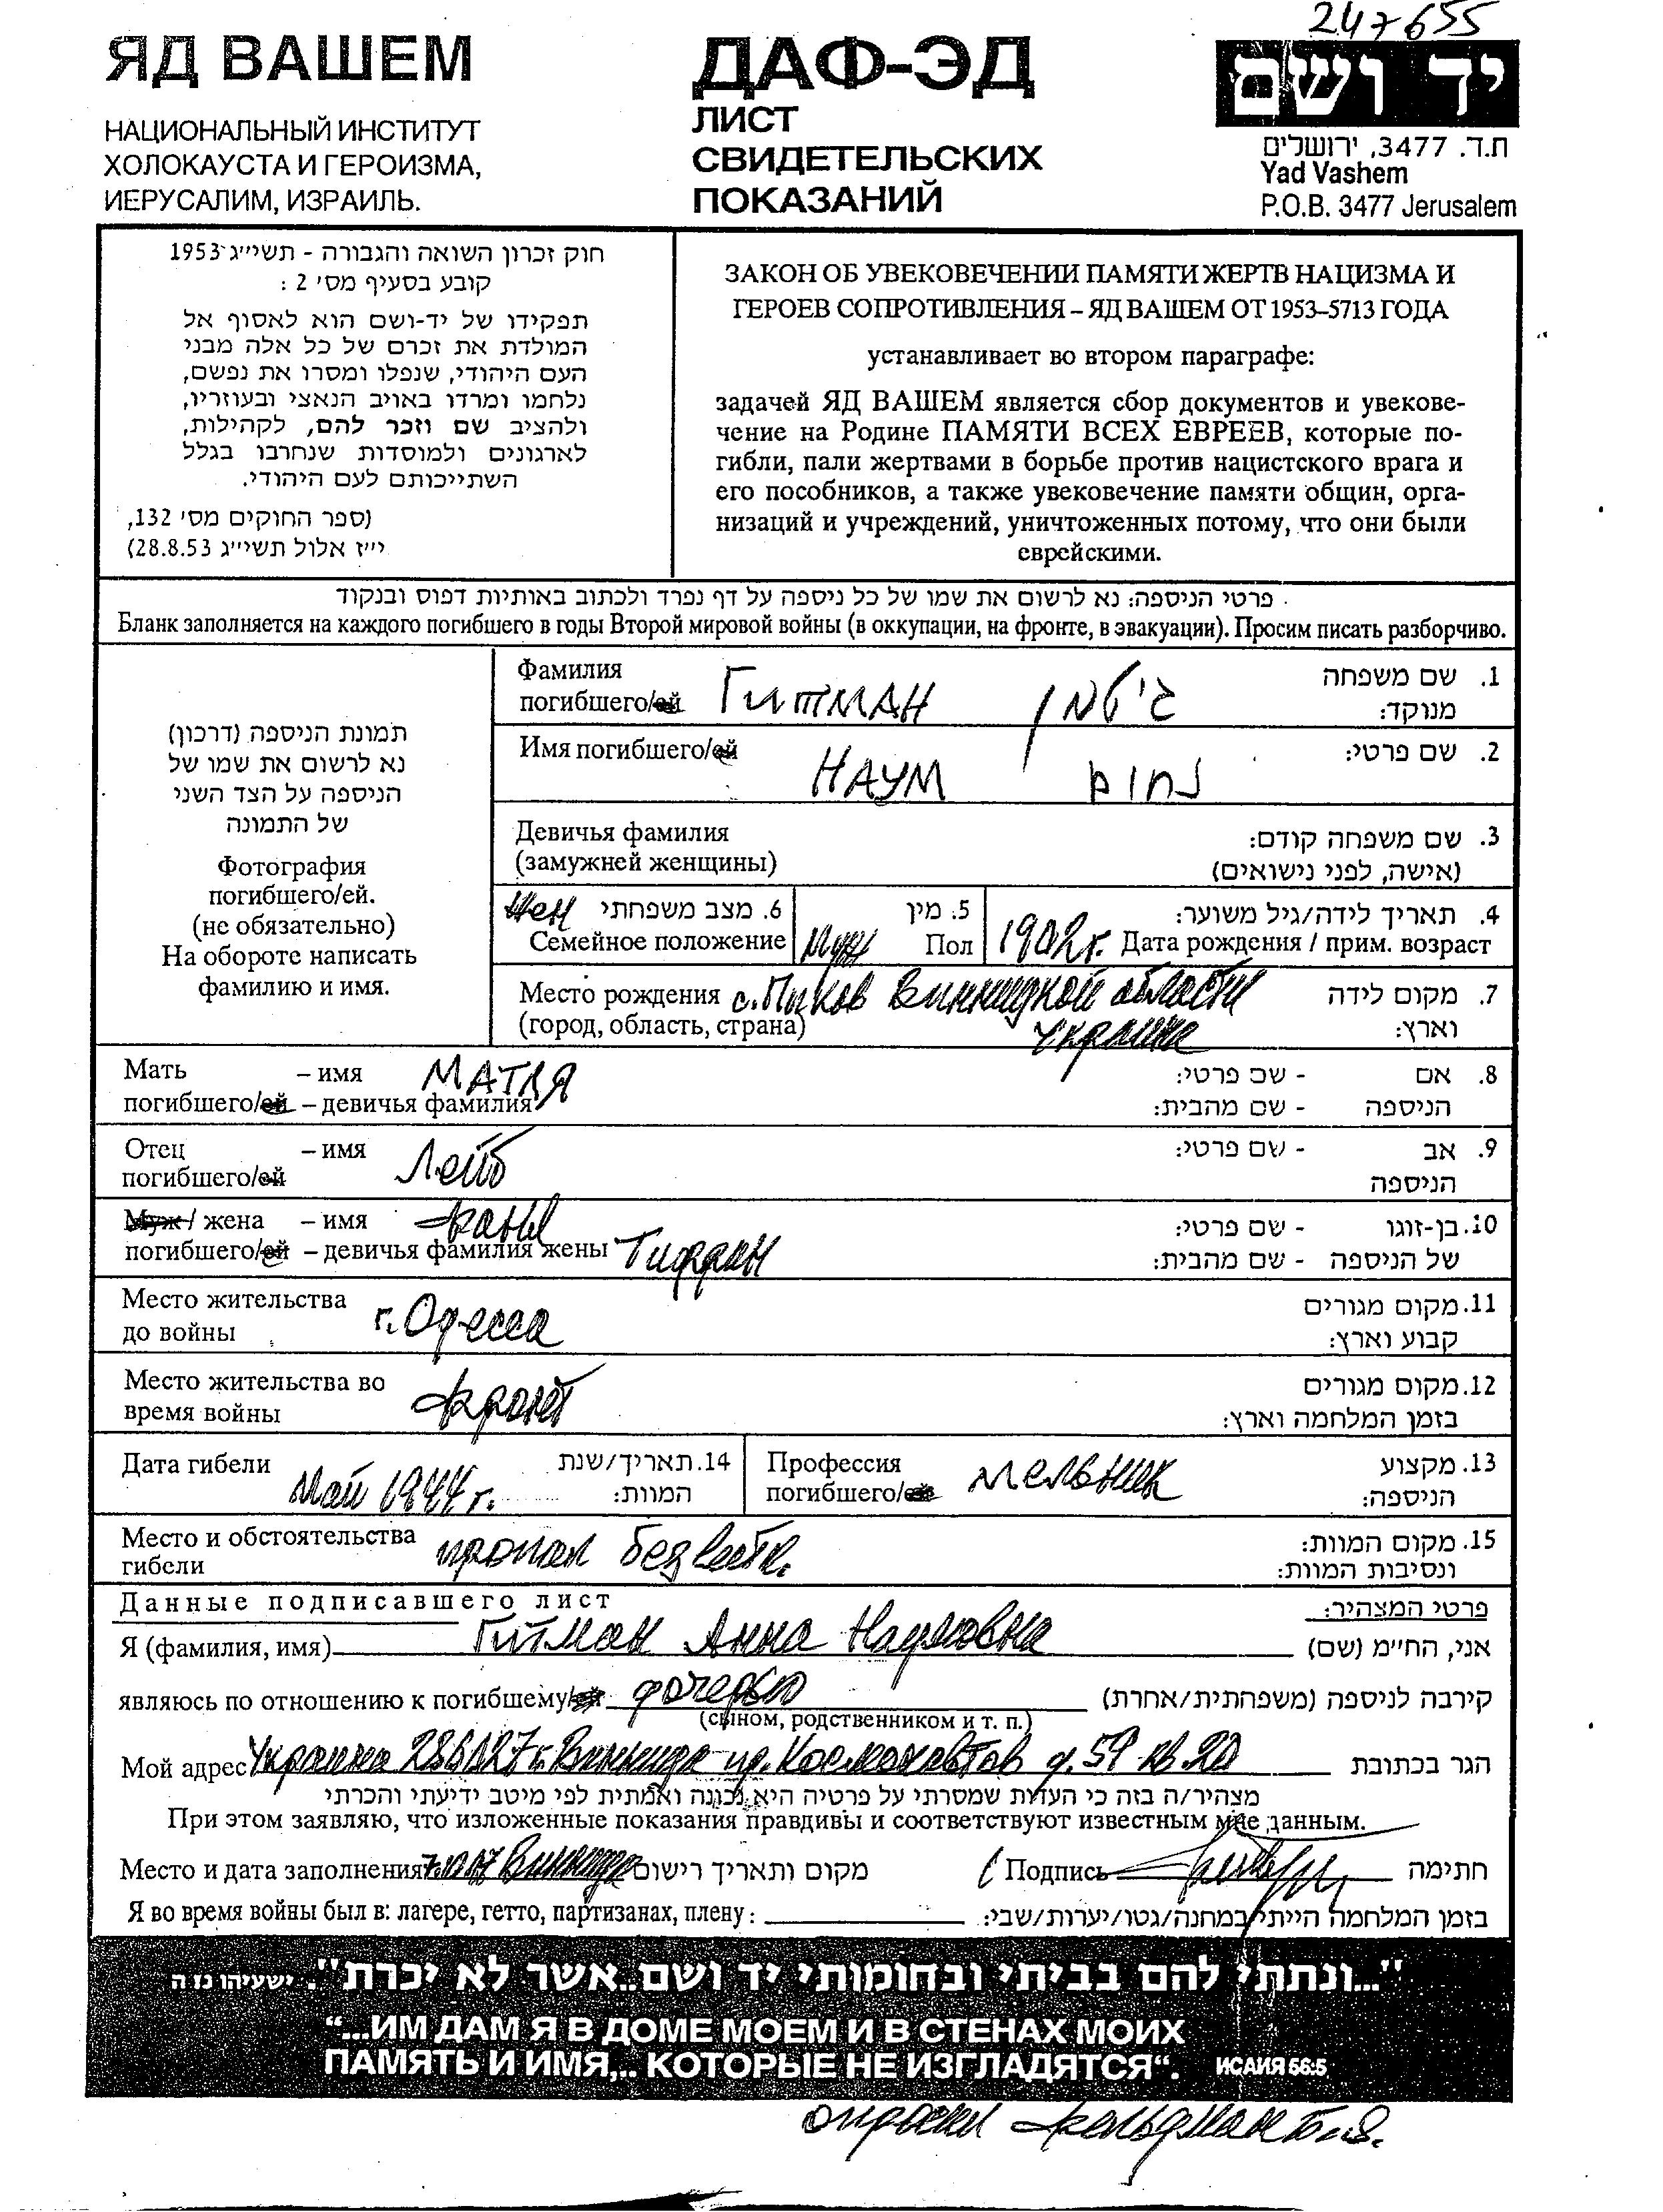 247655
ЯД ВАШЕМ
НАЦИОНАЛЬНЫЙ ИНСТИТУТ
ХОЛОКАУСТА И ГЕРОИЗМА,
ИЕРУСАЛИМ, ИЗРАИЛЬ.
ДАФ-ЭД
ЛИСТ
СВИДЕТЕЛЬСКИХ
ПОКАЗАНИЙ
יד ושם
ת.ד. 3477, ירושלים
Yad Vashem
P.O.B. 3477 Jerusalem
חוק זכרון השואה והגבורה - תשי״ג 1953
קובע בסעיף מס׳ 2 :
תפקידו של יד-ושם הוא לאסוף אל
המולדת את זכרם של כל אלה מבני
העם היהודי, שנפלו ומסרו את נפשם,
נלחמו ומרדו באויב הנאצי ובעוזריו,
ולהציב שם וזכר להם, לקהילות,
לארגונים ולמוסדות שנחרבו בגלל
השתייכותם לעם היהודי.
(ספר החוקים מס׳ 132,
י״ז אלול תשי״ג 28.8.53)
ЗАКОН ОБ УВЕКОВЕЧЕНИИ ПАМЯТИ ЖЕРТВ НАЦИЗМА И
ГЕРОЕВ СОПРОТИВЛЕНИЯ – ЯД ВАШЕМ ОТ 1953–5713 ГОДА
устанавливает во втором параграфе:
задачей ЯД ВАШЕМ является сбор документов и увекове-
чение на Родине ПАМЯТИ ВСЕХ ЕВРЕЕВ, которые по-
гибли, пали жертвами в борьбе против нацистского врага и
его пособников, а также увековечение памяти общин, орга-
низаций и учреждений, уничтоженных потому, что они были
еврейскими.
פרטי הניספה: נא לרשום את שמו של כל ניספה על דף נפרד ולכתוב באותיות דפוס ובנקוד
Бланк заполняется на каждого погибшего в годы Второй мировой войны (в оккупации, на фронте, в эвакуации). Просим писать разборчиво.
תמונת הניספה (דרכון)
נא לרשום את שמו של
הניספה על הצד השני
של התמונה
Фотография
погибшего/ей.
(не обязательно)
На обороте написать
фамилию и имя.
Фамилия Гитман גיטמן 1. שם משפחה
погибшего/ей מנוקד:
Имя погибшего/ей НАУМ נחום 2. שם פרטי:
Девичья фамилия 3. שם משפחה קודם:
(замужней женщины) (אישה, לפני נישואים)
6. מצב משפחתי 5. מין 4. תאריך לידה/גיל משוער:
Семейное положение муж Пол 1902г. Дата рождения / прим. возраст
Место рождения с. Пиков Винницкой области 7. מקום לידה
(город, область, страна) Украина וארץ:
Мать – имя МАТЛЯ 8. אם - שם פרטי:
погибшего/ей – девичья фамилия הניספה - שם מהבית:
Отец – имя Лейб 9. אב - שם פרטי:
погибшего/ей הניספה
Муж / жена – имя 10. בן-זוגו - שם פרטי:
погибшего/ей – девичья фамилия жены של הניספה - שם מהבית:
Место жительства г. Одесса 11. מקום מגורים
до войны קבוע וארץ:
Место жительства во фронт 12. מקום מגורים
время войны בזמן המלחמה וארץ:
Дата гибели май 1944 г. 14. תאריך/שנת המוות:
Профессия мельник 13. מקצוע
погибшего/ей הניספה:
Место и обстоятельства пропал без вести. 15. מקום המוות:
гибели ונסיבות המוות:
Данные подписавшего лист פרטי המצהיר:
Я (фамилия, имя) Гитман Анна Наумовна אני, הח״מ (שם)
являюсь по отношению к погибшему/ей дочерью קירבה לניספה (משפחתית/אחרת)
(сыном, родственником и т. п.)
Мой адрес Украина 286027 г. Винница ул. Космонавтов д. 59 кв 20 הגר בכתובת
מצהיר/ה בזה כי העדות שמסרתי על פרטיה היא נכונה ואמתית לפי מיטב ידיעתי והכרתי
При этом заявляю, что изложенные показания правдивы и соответствуют известным мне данным.
Место и дата заполнения Винница מקום ותאריך רישום Подпись חתימה
Я во время войны был в: лагере, гетто, партизанах, плену: בזמן המלחמה הייתי במחנה/גטו/יערות/שבי:
"...ונתתי להם בביתי ובחומותי יד ושם...אשר לא יכרת". ישעיהו נו ה
“...ИМ ДАМ Я В ДОМЕ МОЕМ И В СТЕНАХ МОИХ
ПАМЯТЬ И ИМЯ,.. КОТОРЫЕ НЕ ИЗГЛАДЯТСЯ“. ИСАИЯ 56:5